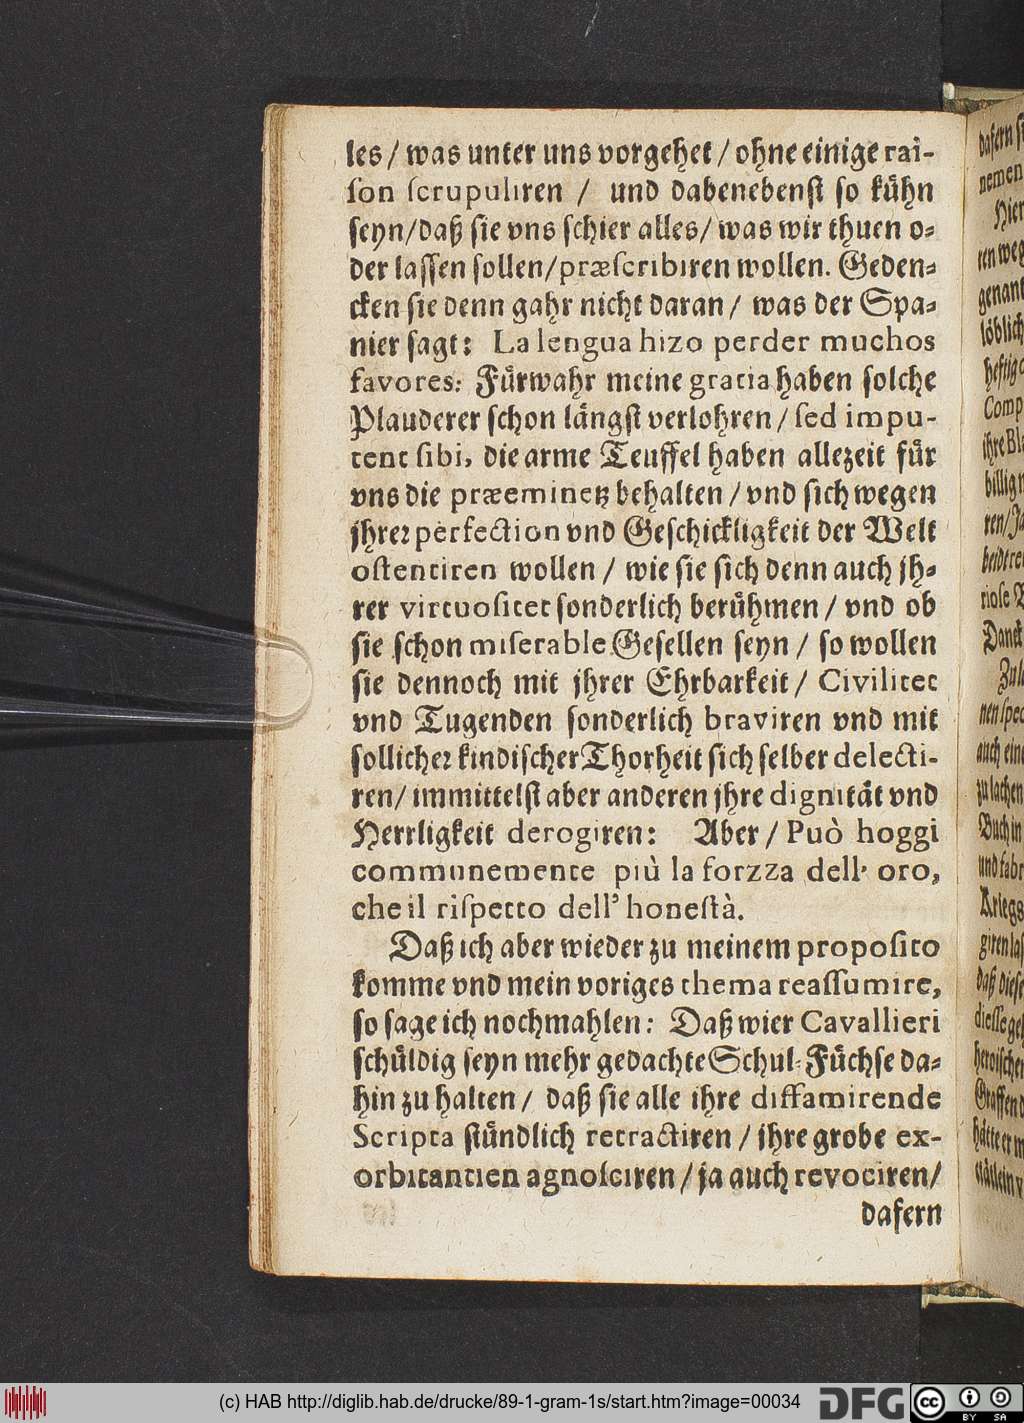 les / was unter uns vorgehet / ohne einige rai-
ſon ſcrupuliren / und dabenebenſt ſo kuͤhn
ſeyn/ daß ſie vns ſchier alles/ was wir thuen o-
der laſſen ſollen/præſcribiren wollen. Geden-
cken ſie denn gahr nicht daran / was der Spa-
nier ſagt: La lengua hizo perder muchos
favores: Fuͤrwahr meine gratia haben ſolche
Plauderer ſchon laͤngſt verlohren / ſed impu-
tent ſibi, die arme Teuffel haben allezeit fuͤr
vns die præeminetz behalten / vnd ſich wegen
jhrer perfection vnd Geſchickligkeit der Welt
oſtentiren wollen / wie ſie ſich denn auch jh-
rer virtuoſitet ſonderlich beruͤhmen / vnd ob
ſie ſchon miſerable Geſellen ſeyn / ſo wollen
ſie dennoch mit jhrer Ehrbarkeit / Civilitet
vnd Tugenden ſonderlich braviren vnd mit
ſollicher kindiſcher Thorheit ſich ſelber delecti-
ren/ immittelſt aber anderen jhre dignitaͤt vnd
Herrligkeit derogiren: Aber / Può hoggi
communemente più la forzza dell' oro,
che il riſpetto dell' honeſtà.
Daß ich aber wieder zu meinem propoſito
komme vnd mein voriges thema reaſſumire,
ſo ſage ich nochmahlen: Daß wier Cavallieri
ſchuͤldig ſeyn mehr gedachte Schul-Fuͤchſe da-
hin zu halten / daß ſie alle ihre diffamirende
Scripta ſtuͤndlich retractiren / ihre grobe ex-
orbitantien agnoſciren / ja auch revociren/
dafern
dafern
nemen
Hier
ren weg
genant
loͤblich
heftige
Comp
ihre Bla
billig
ren/ Ja
beide
rioſe
Danck
Zul
nen ſpec
auch eine
zu lachen
Buch in
und fabr
Kriegs
giren laſ
daß dieſe
dieſſe ge
heroiſchen
Graffen
haͤtte er
(c) HAB http://diglib.hab.de/drucke/89-1-gram-1s/start.htm?image=00034
DFG
cc BY SA